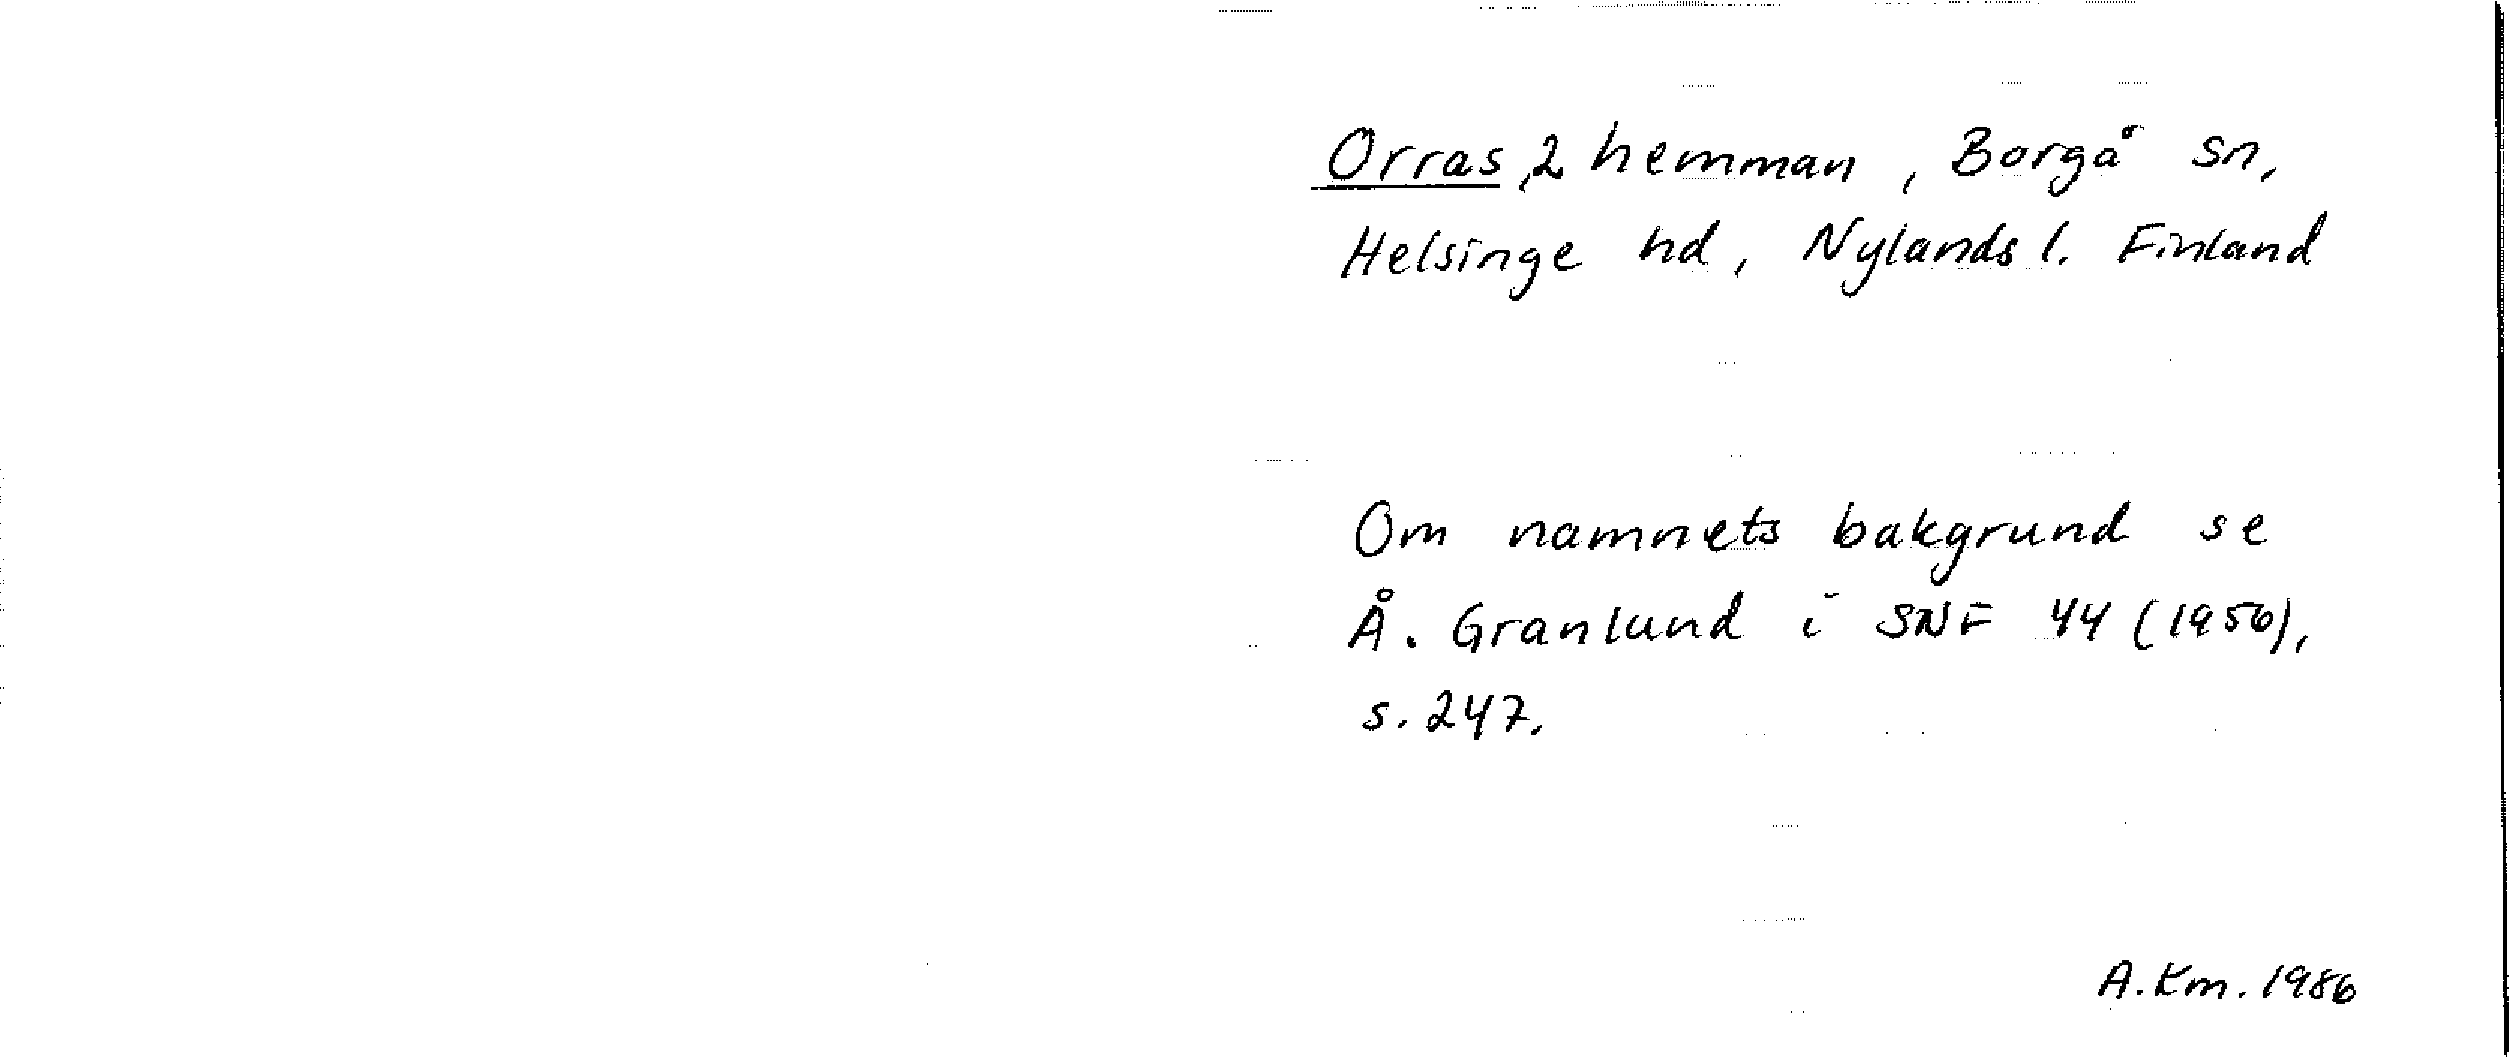 Orras, 2 hemman, Borgå sn,
Helsinge hd, Nylands l. Finland
Om namnets bakgrund se
Å. Granlund i SNF 44 (1956),
s. 247.
A. Km. 1986